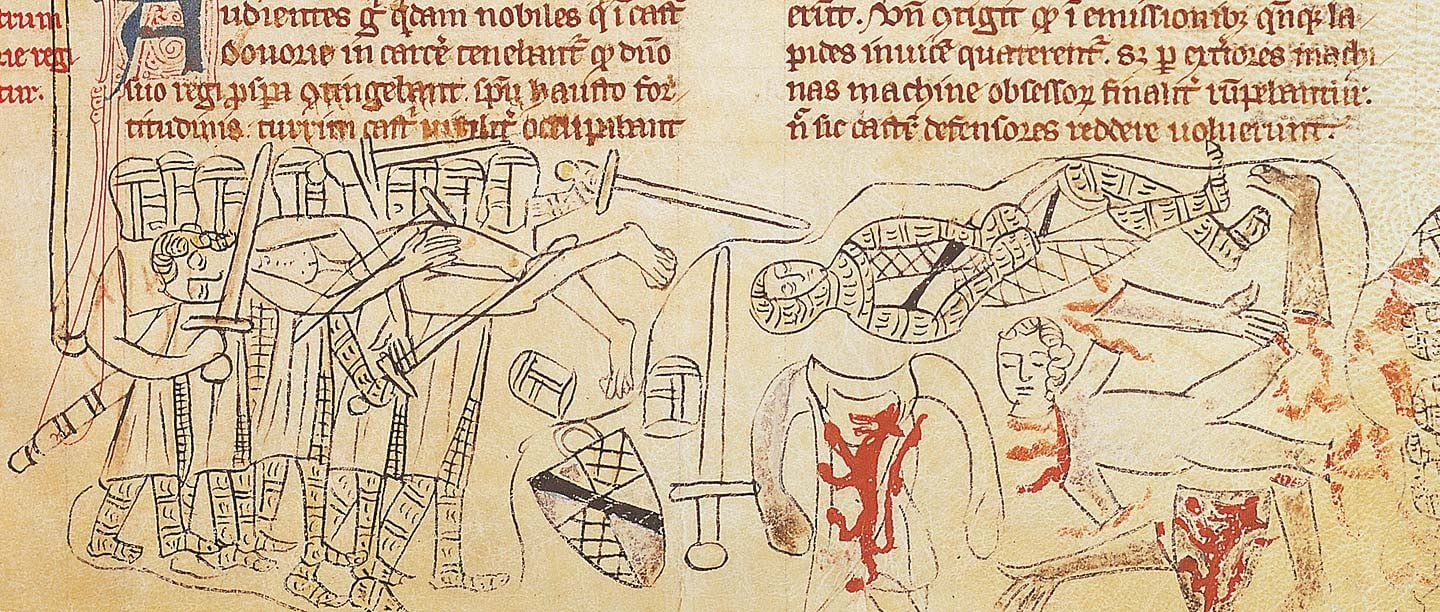 trum
rie regi
tur.
Audientes g̃ q̃dam nobiles q̇ ī cast᷑
Douorie in carc̄e tenebant᷑ ꝙ dn̄o
suo regi ꝓspa ꝯtingebant. sp̄u hausto for
titudinis. turrim cast᷑ uirilit᷑ occupabant
erūt. Vn̄ ꝯtigit ꝙ ī emissionibꝫ qn̄qꝫ la
pides inuicē quaterent᷑. sꝫ ꝑ ext᷑iores machi
nas machine obsessoꝝ finalit᷑ rūpebantur.
n̄ sic cast᷑ defensores reddere uoluerunt.